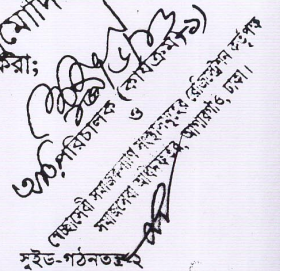 করা;
অতিঃপরিচালক (কার্যক্রম)
ও
স্বেচ্ছাসেবী সমাজকল্যাণ সংস্থাসমূহের রেজিস্ট্রেশন কর্তৃপক্ষ
সমাজসেবা অধিদফতর, আগারগাঁও, ঢাকা।
সুইড-গঠনতন্ত্র-২